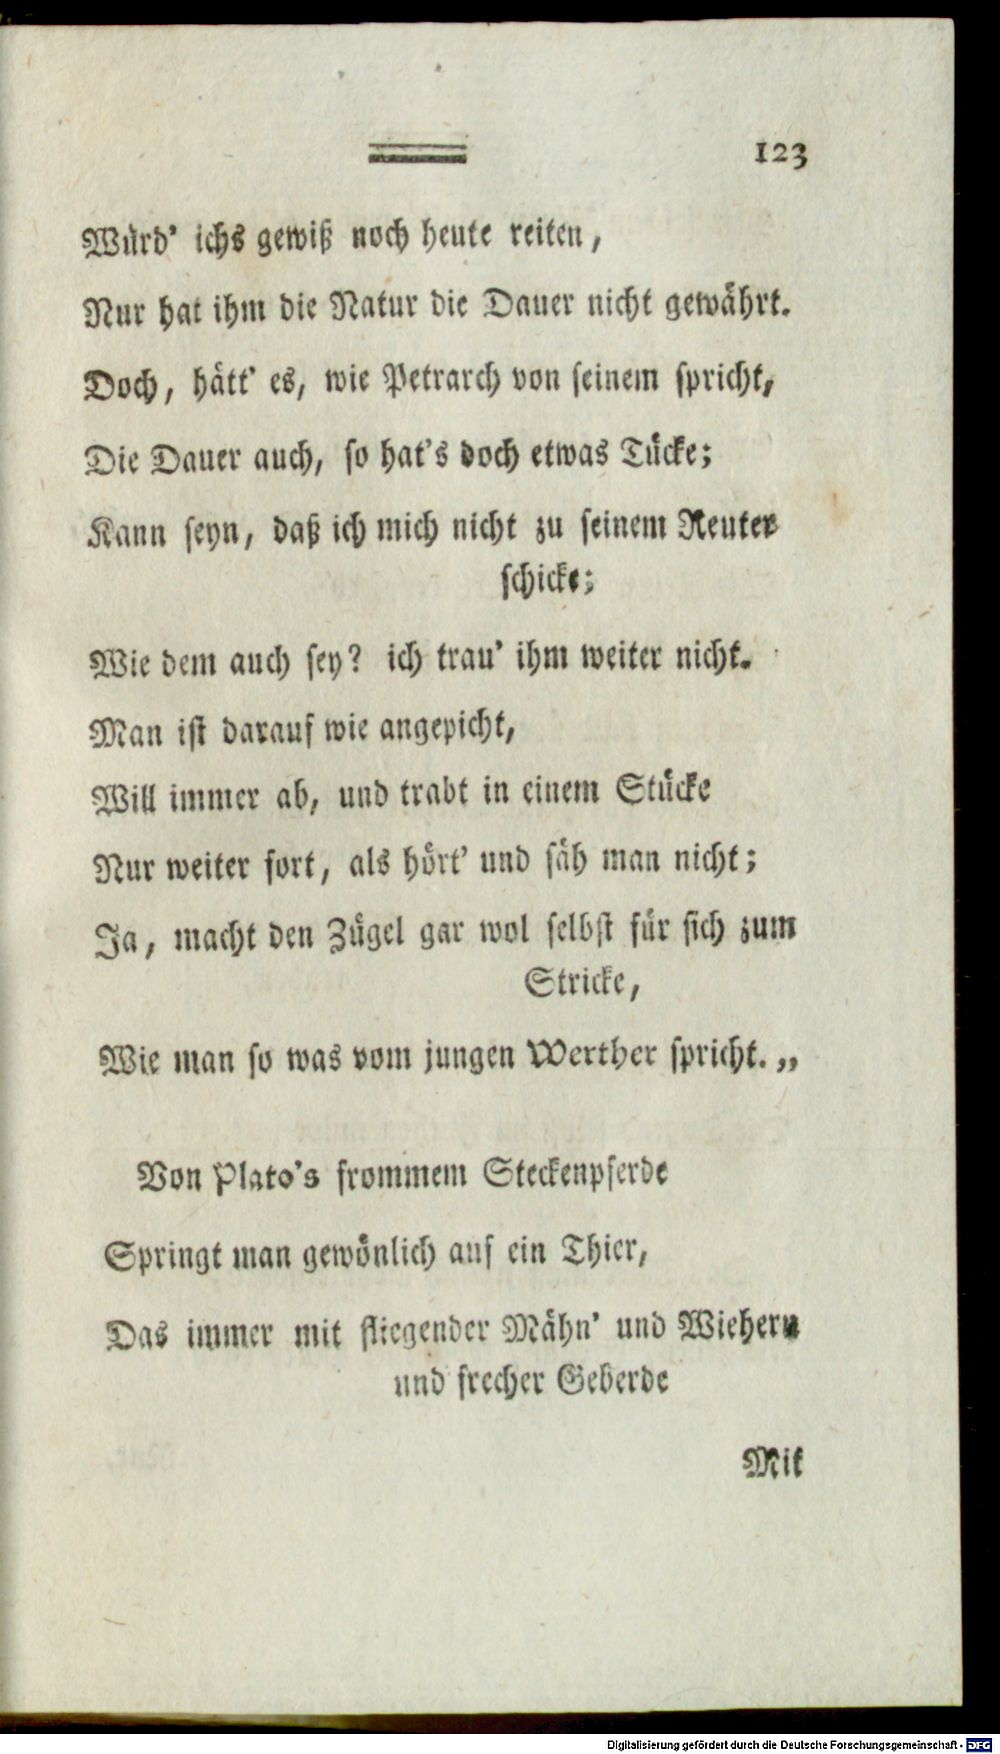 123
Würd' ichs gewiß noch heute reiten,
Nur hat ihm die Natur die Dauer nicht gewährt.
Doch, hätt' es, wie Petrarch von seinem spricht,
Die Dauer auch, so hat's doch etwas Tücke;
Kann seyn, daß ich mich nicht zu seinem Reuter
schicke;
Wie dem auch sey? ich trau' ihm weiter nicht.
Man ist darauf wie angepicht,
Will immer ab, und trabt in einem Stücke
Nur weiter fort, als hört' und säh man nicht;
Ja, macht den Zügel gar wol selbst für sich zum
Stricke,
Wie man so was vom jungen Werther spricht.„
Von Plato's frommem Steckenpferde
Springt man gewönlich auf ein Thier,
Das immer mit fliegender Mähn' und Wiehern
und frecher Geberde
Mit
Digitalisierung gefördert durch die Deutsche Forschungsgemeinschaft - DFG